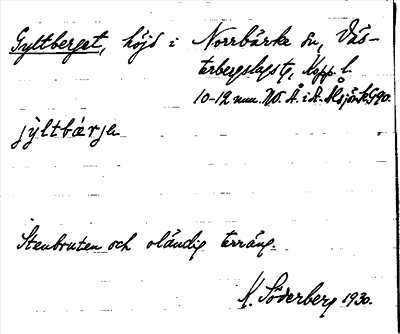 Gyttberget, höjd i Norrbärke sn, Väs-
terbergslags tg, Kopp. l.
10-12 mm. NO. Å. i A.
jyltbærje
Stenbruten och oländig terräng.
K. Söderberg 1930.